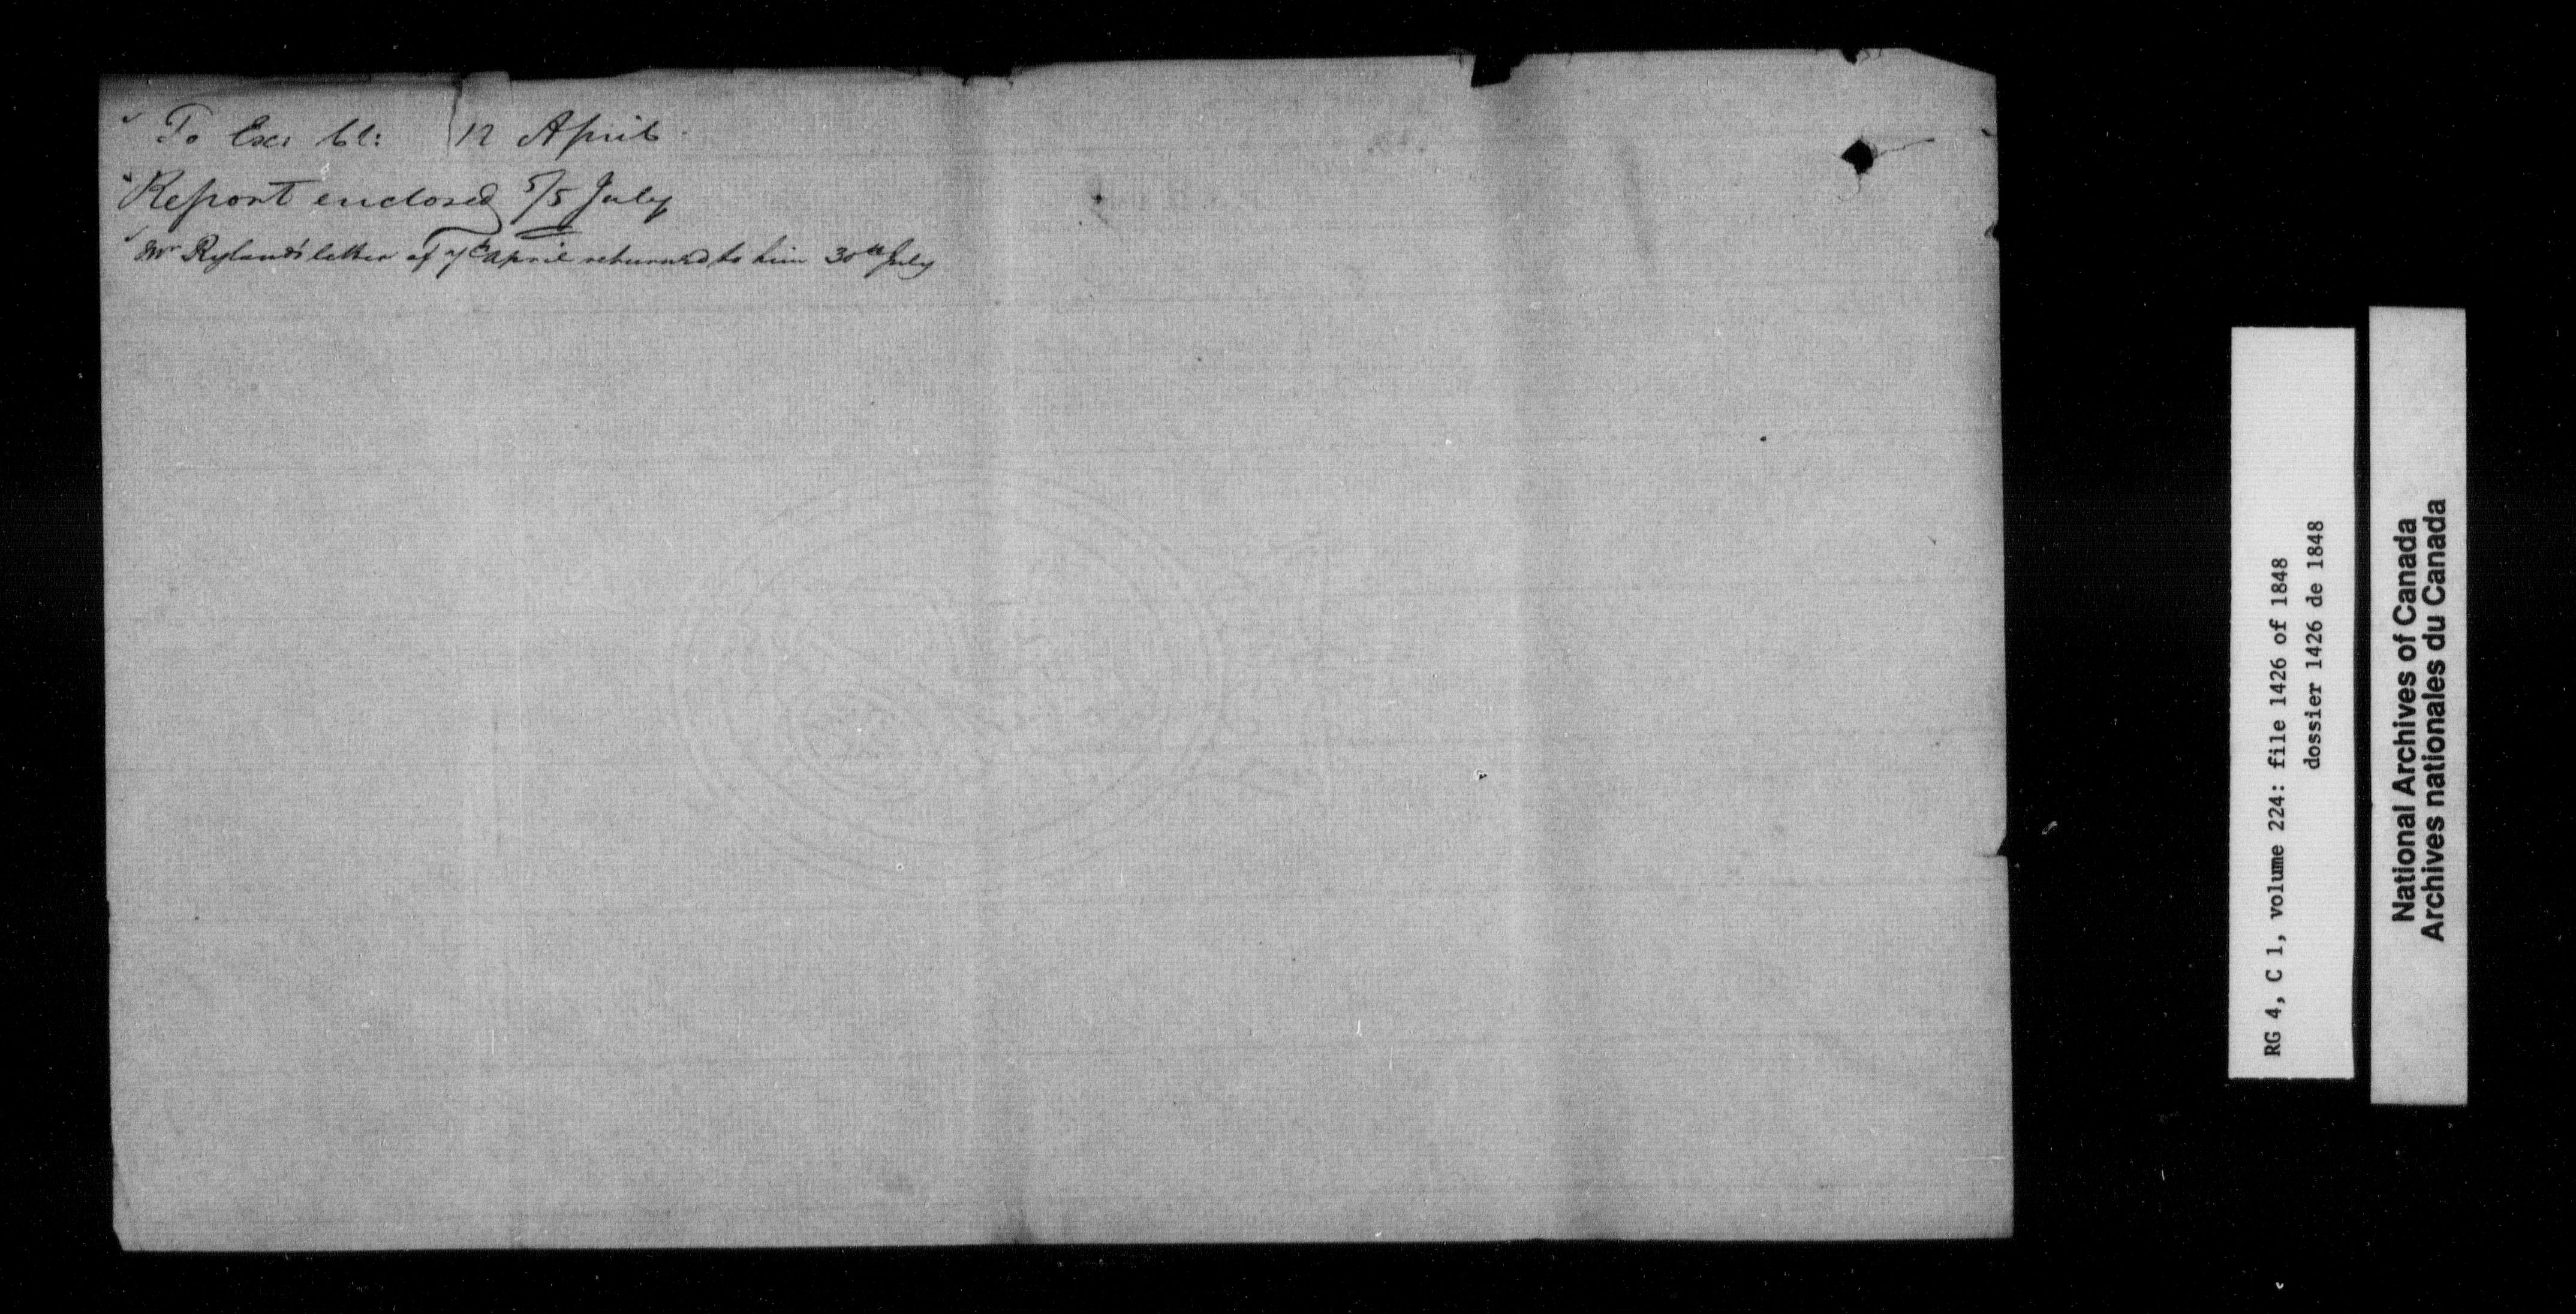 To Exe: Cl: 12 April
Report enclosed 5/5 July
Mr Ryland's letter of 7th April returned to him 30th July
RG 4, C 1, volume 224: file 1426 of 1848
dossier 1426 de 1848
National Archives of Canada
Archives nationales du Canada